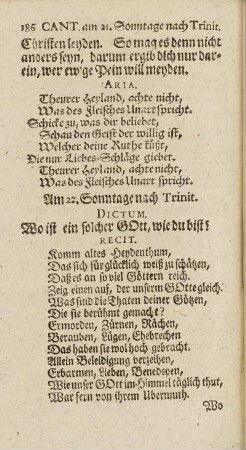 186 CANT. am 21. Sonntage nach Trinit.
Christen leyden. So mag es denn nicht
anders seyn, darum ergib dich nur dar-
ein, wer ew'ge Pein will meyden.
ARIA.
Theurer Heyland, achte nicht,
Was des Fleisches Unart spricht.
Schicke zu, was dir beliebet,
Schau den Geist der willig ist,
Welcher deine Ruthe küßt,
Die nur Liebes-Schläge giebet.
Theurer Heyland, achte nicht,
Was des Fleisches Unart spricht.
Am 22. Sonntage nach Trinit.
DICTUM.
Wo ist ein solcher GOtt, wie du bist?
RECIT.
Komm altes Heydenthum,
Das sich für glücklich weiß zu schätzen,
Daß es an so viel Göttern reich.
Zeig einen auf, der unserm GOtte gleich.
Was sind die Thaten deiner Götzen,
Die sie berühmt gemacht?
Ermorden, Zürnen, Rächen,
Berauben, Lügen, Ehebrechen
Das haben sie wol hoch gebracht.
Allein Beleidigung verzeihen,
Erbarmen, Lieben, Benedeyen,
Wie unser GOtt im Himmel täglich thut,
War fern von ihrem Ubermuth.
Wo